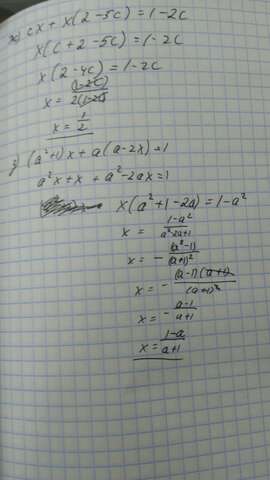 ж) cx + x(2-5c)=1-2c
x(c+2-5c)=1-2c
x(2-4c)=1-2c
x = (1-2c)/2(1-2c)
x = 1/2
з) (a²+1)x + a(a-2x)=1
a²x+x + a²-2ax=1
x(a²+1-2a)=1-a²
x = 1-a²/a²2a+1
x = - (a²-1)/(a+1)²
x = - (a-1)(a+1)/(a+1)²
x = - a-1/a+1
x = 1-a/a+1